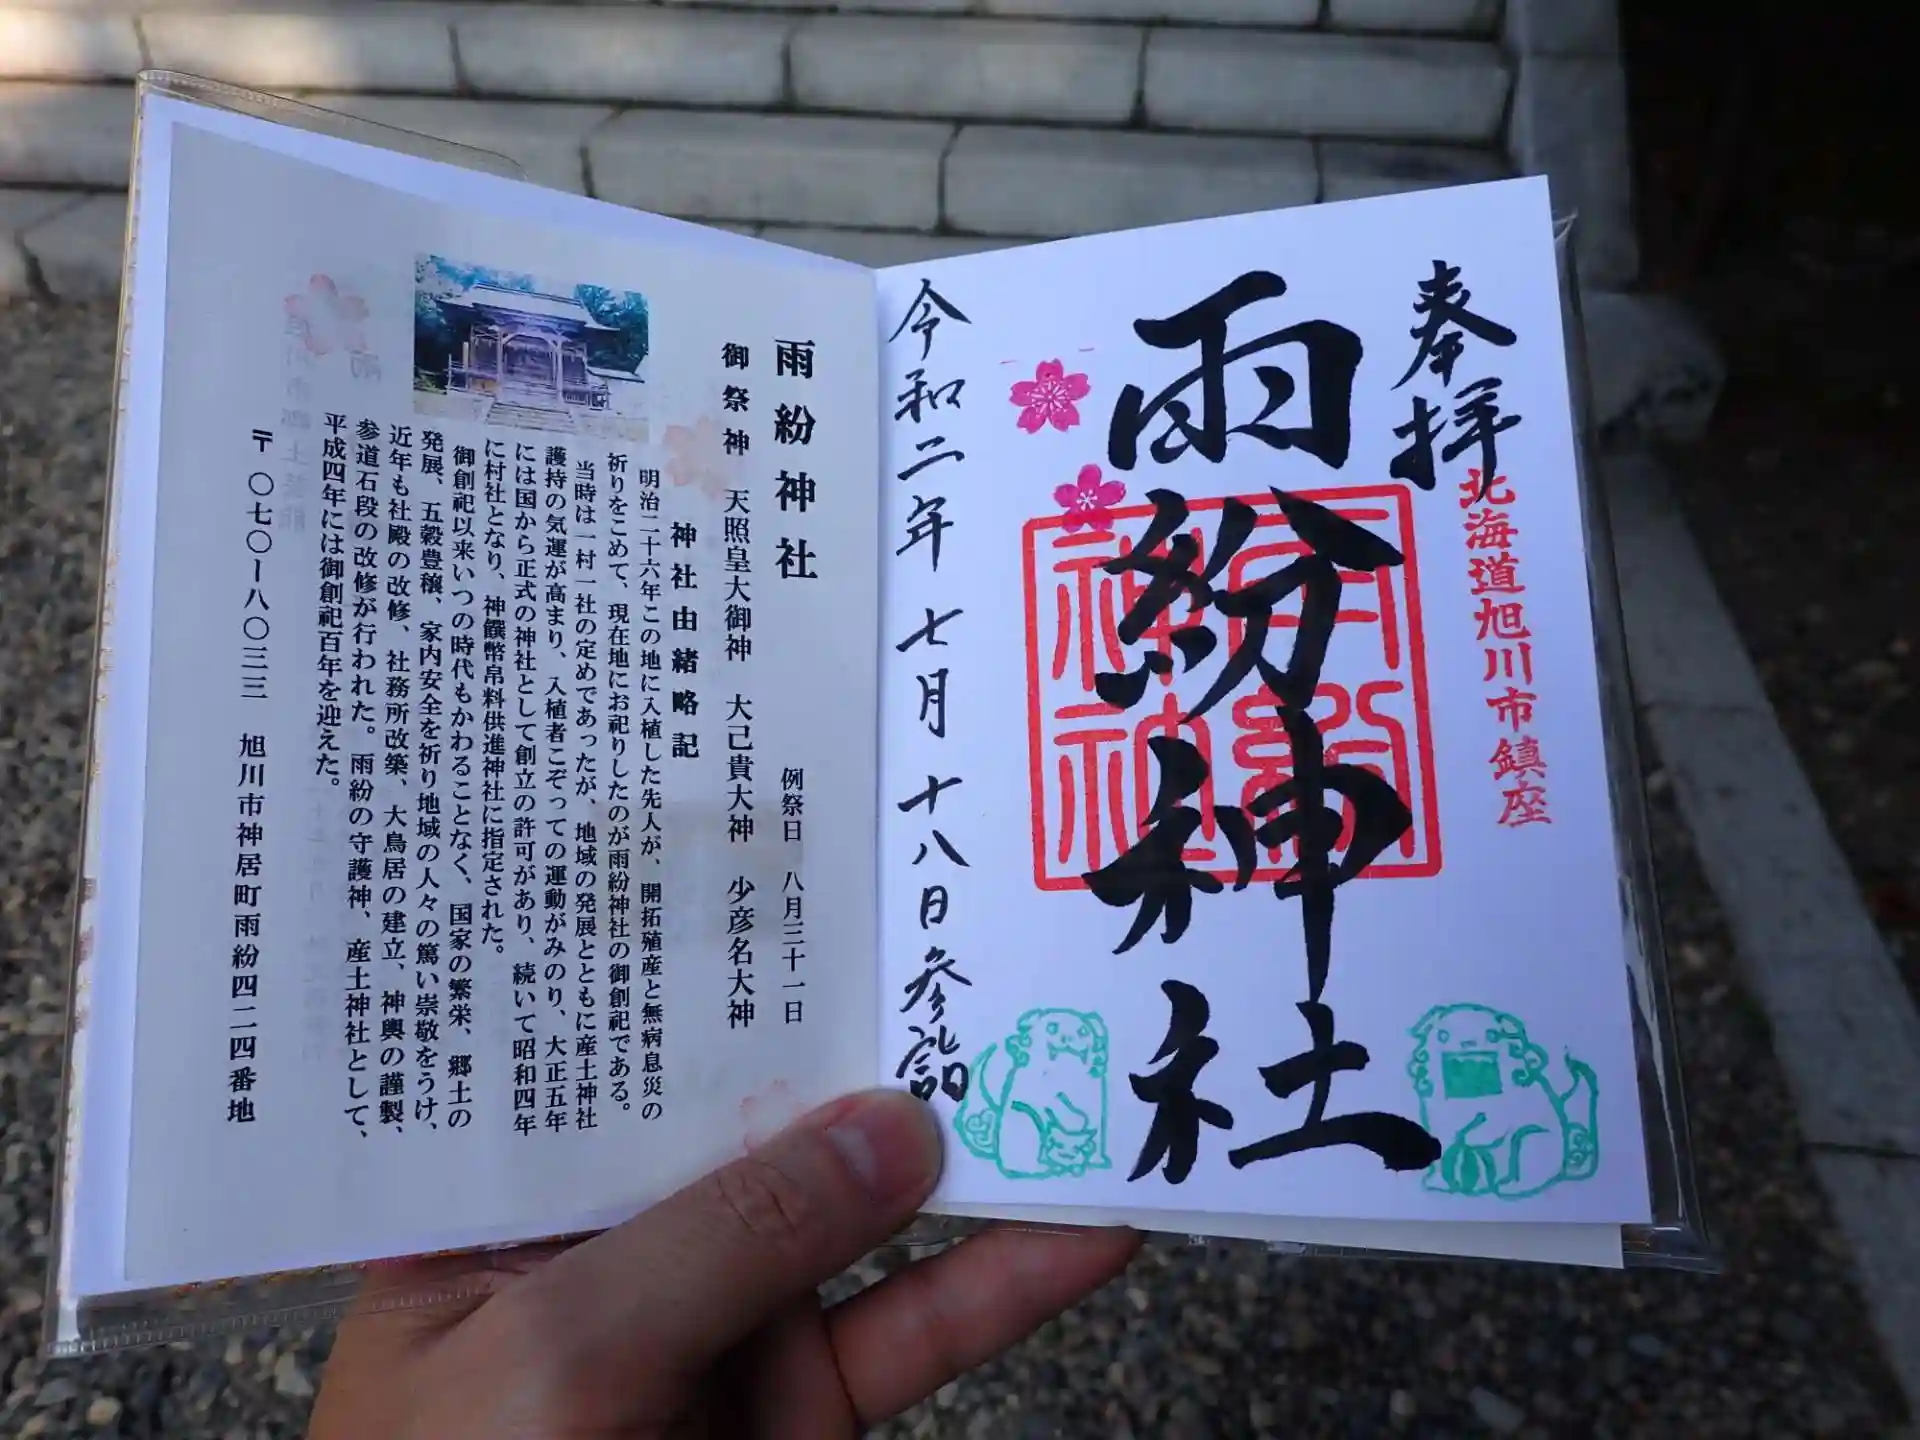 奉拝
北海道旭川市鎮座
雨紛神社
雨紛神社
令和二年七月十八日参詣
雨紛神社
例祭日 八月三十一日
御祭神 天照皇大御神 大己貴大神 少彦名大神
神社由緒略記
明治二十六年この地に入植した先人が、開拓殖産と無病息災の
祈りをこめて、現在地にお祀りしたのが雨紛神社の御創祀である。
当時は一村一社の定めであったが、地域の発展とともに産土神社
護持の気運が高まり、入植者こぞっての運動がみのり、大正五年
には国から正式の神社として創立の許可があり、続いて昭和四年
に村社となり、神饌幣帛料供進神社に指定された。
御創祀以来いつの時代もかわることなく、国家の繁栄、郷土の
発展、五穀豊穣、家内安全を祈り地域の人々の篤い崇敬をうけ、
近年も社殿の改修、社務所改築、大鳥居の建立、神輿の謹製、
参道石段の改修が行われた。雨紛の守護神、産土神社として、
平成四年には御創祀百年を迎えた。
〒〇七〇ー八〇三三 旭川市神居町雨紛四二四番地